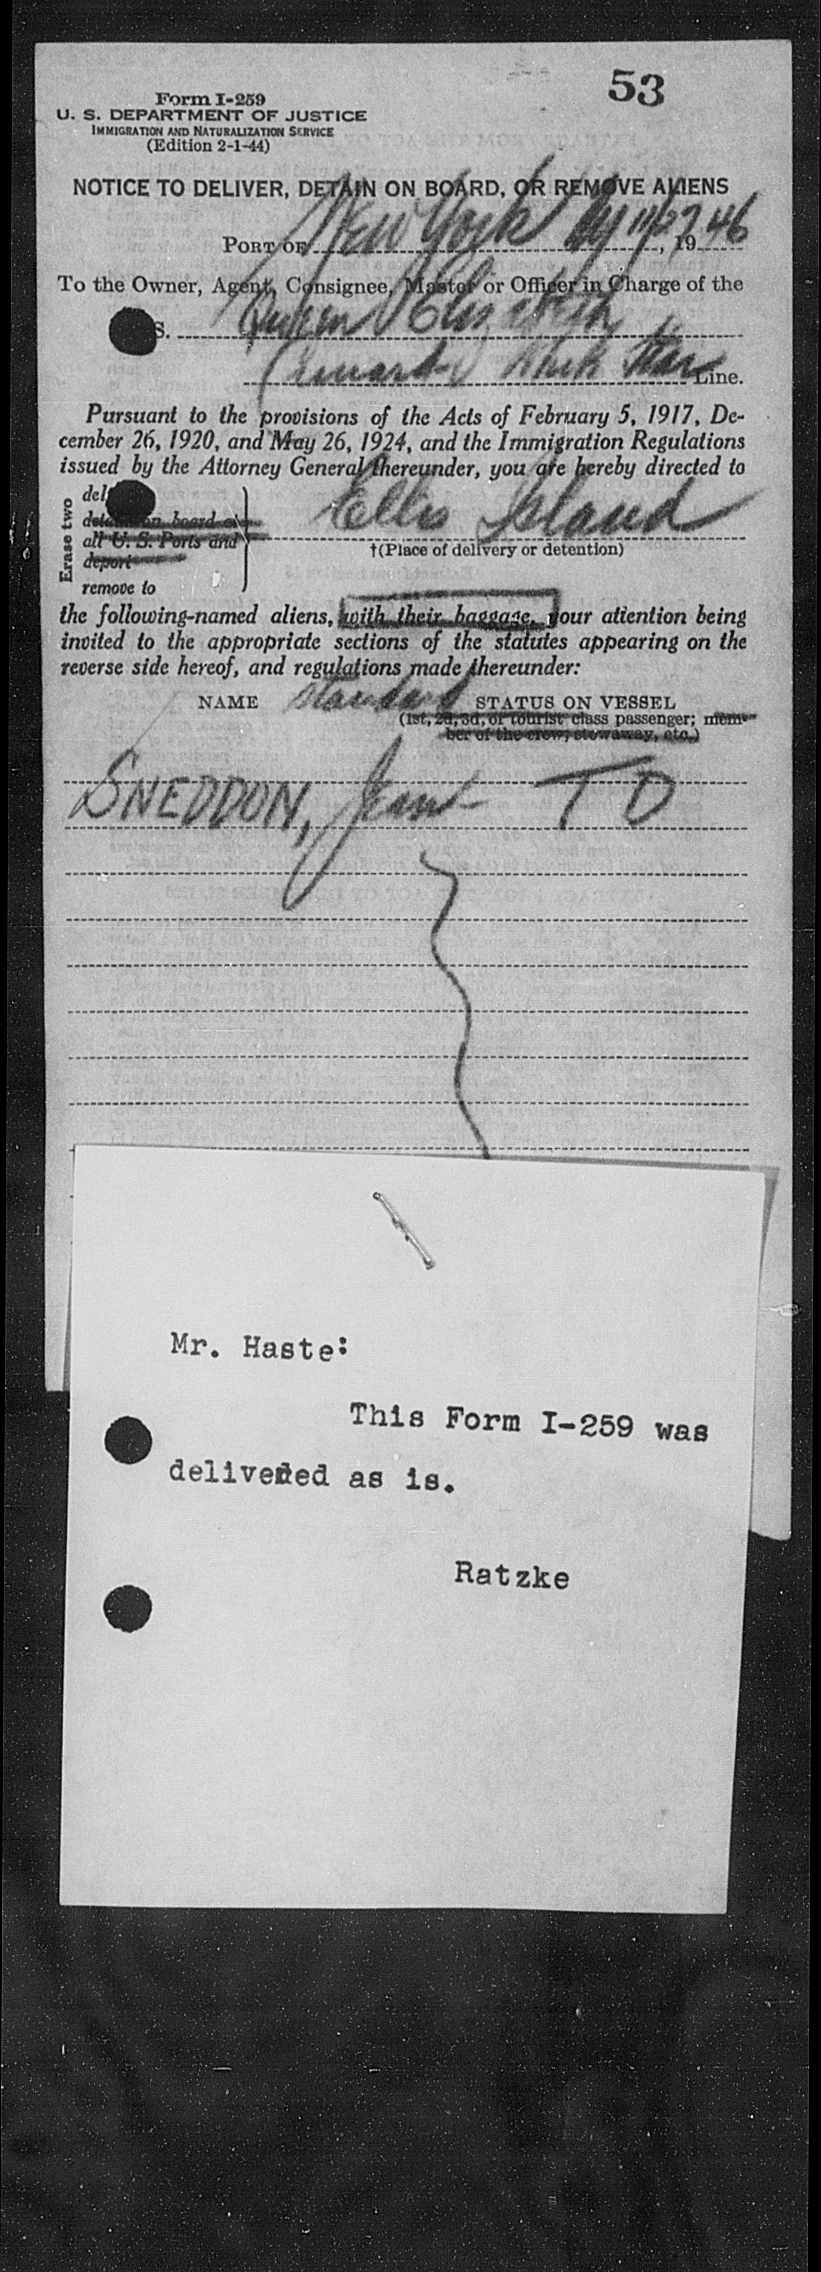 53
Form I-259
U. S. DEPARTMENT OF JUSTICE
IMMIGRATION AND NATURALIZATION SERVICE
(Edition 2-1-44)
NOTICE TO DELIVER, DETAIN ON BOARD, OR REMOVE ALIENS
PORT OF New York NY 11/27, 1946
To the Owner, Agent, Consignee, Master or Officer in Charge of the
S. Queen Elizabeth
Cunard White Star Line.
Pursuant to the provisions of the Acts of February 5, 1917, De-
cember 26, 1920, and May 26, 1924, and the Immigration Regulations
issued by the Attorney General thereunder, you are hereby directed to
Erase two
del
detain on board at
all U. S. Ports and
deport
remove to
Ellis Island
†(Place of delivery or detention)
the following-named aliens, with their baggage, your attention being
invited to the appropriate sections of the statutes appearing on the
reverse side hereof, and regulations made thereunder:
NAME standard STATUS ON VESSEL
(1st, 2d, 3d, or tourist class passenger; mem-
ber of the crew; stowaway, etc.)
SNEDDON, Jean TD
Mr. Haste:
This Form I-259 was
delivered as is.
Ratzke